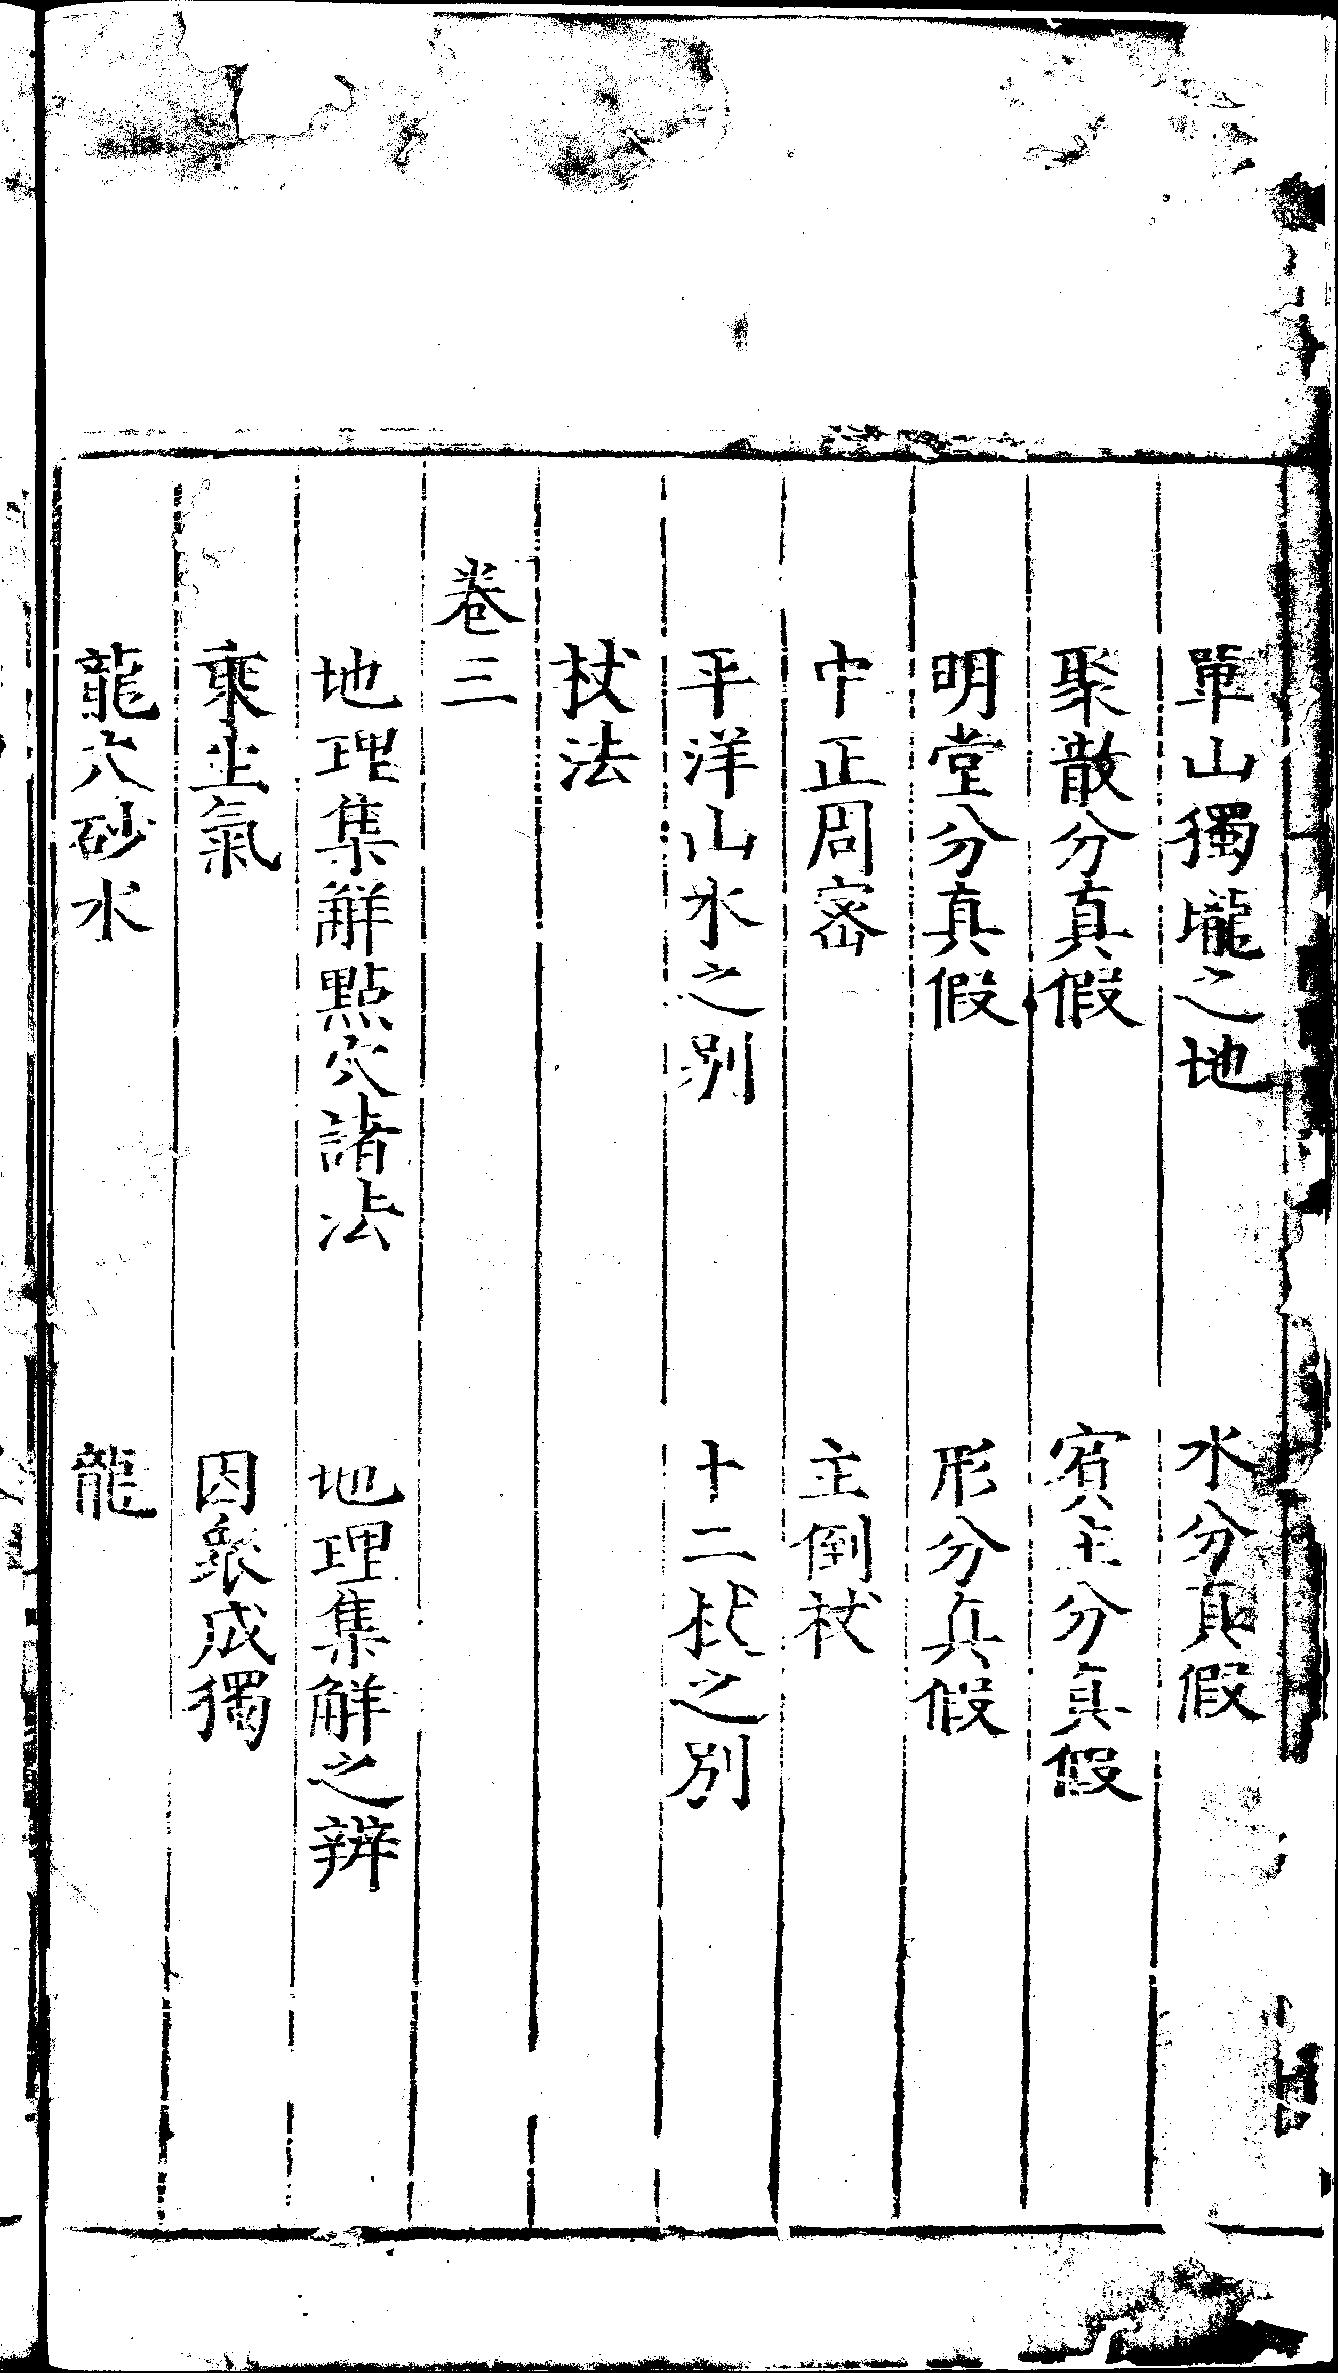 單山獨壠之地　水分真假
聚散分真假　賔主分真假
明堂分真假　形分真假
中正周宻　主倒杖
平洋山水之别　十二杖之別
杖法
卷三
地理集解點穴諸法　地理集解之辨
乘生氣　因衆成獨
龍穴砂水　龍